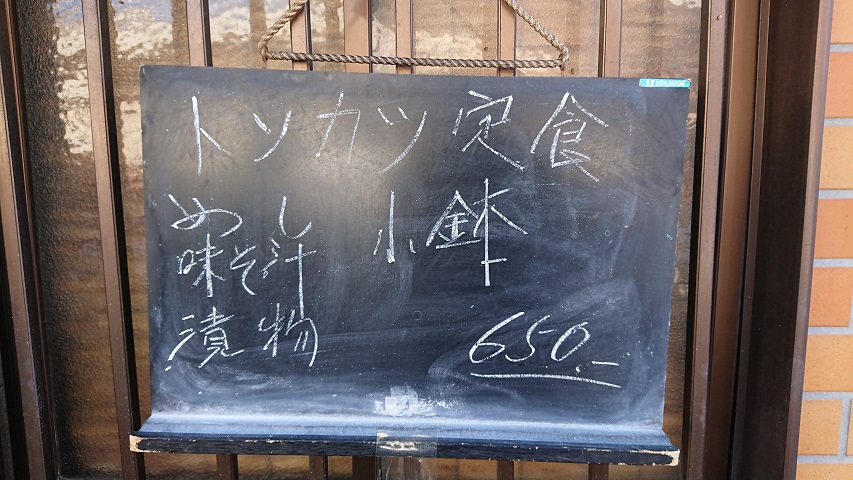 トンカツ定食
めし 小鉢
味そ汁
漬物
650.-